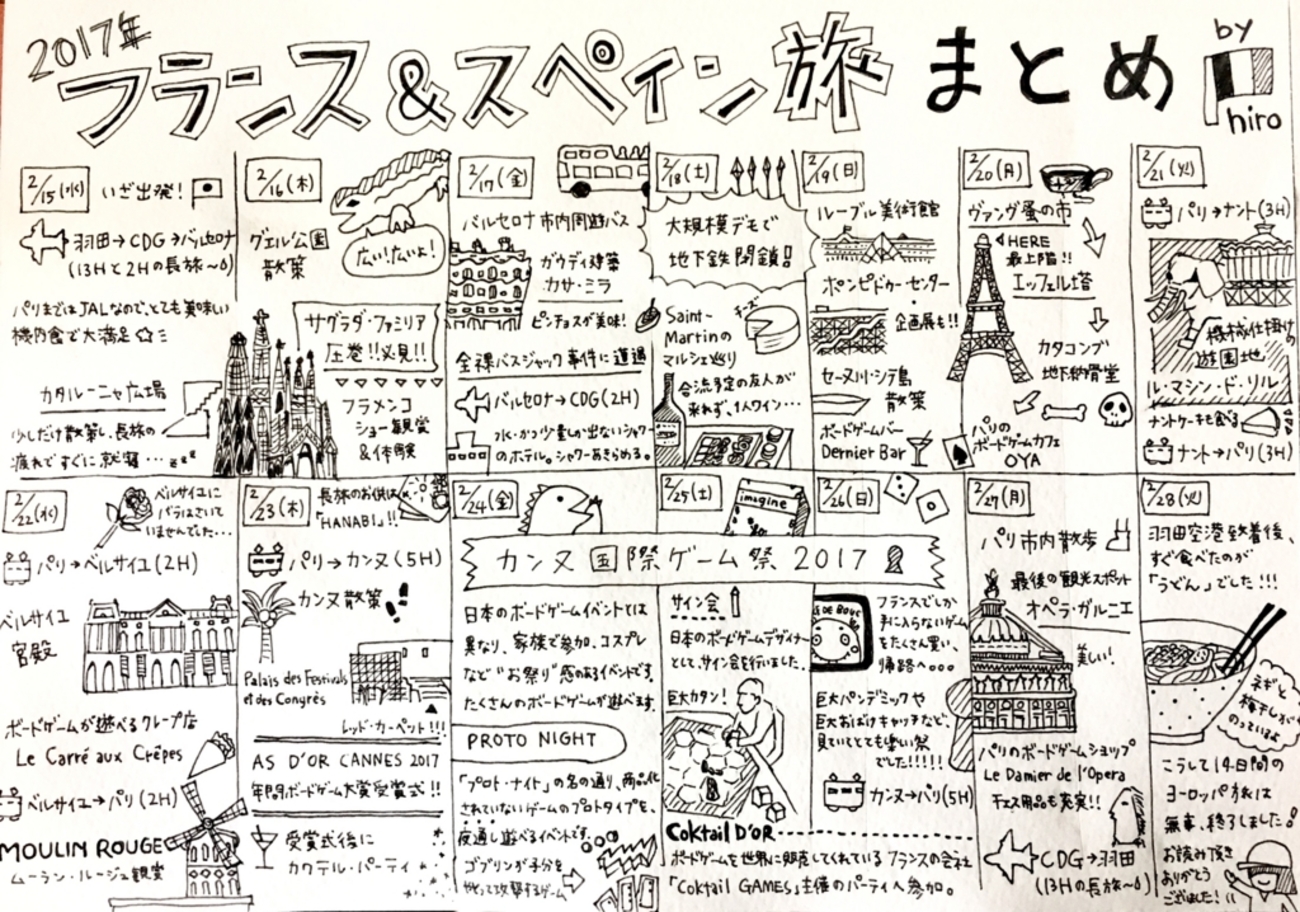 2017年
フランス&スペイン旅 まとめ
by
hiro
2/15(水)
いざ出発!
羽田→CDG→バルセロナ
(13Hと2Hの長旅〜)
パリまではJALなので、とても美味しい
機内食で大満足
カタルーニャ広場
少しだけ散策し、長旅の
疲れですぐに就寝…zzz
2/16(木)
グエル公園
散策
広い!広いよ!
サグラダ・ファミリア
圧巻!!必見!!
フラメンコ
ショー観賞
&体験
2/17(金)
バルセロナ市内周遊バス
ガウディ建築
カサ・ミラ
ピンチョスが美味!
全裸バスジャック事件に遭遇
バルセロナ→CDG(2H)
水・かつ少量しか出ないシャワー
のホテル。シャワーあきらめる。
2/18(土)
大規模デモで
地下鉄閉鎖!
Saint-
Martinの
マルシェ巡り
チーズ
合流予定の友人が
来れず、1人ワイン…
2/19(日)
ルーブル美術館
ポンピドゥー・センター
企画展も!!
セーヌ川・シテ島
散策
ボードゲームバー
Dernier Bar
2/20(月)
ヴァンヴ蚤の市
HERE
最上階!!
エッフェル塔
カタコンブ
地下納骨堂
パリの
ボードゲームカフェ
OYA
2/21(火)
パリ→ナント(3H)
機械仕掛けの
遊園地
ル・マシン・ド・リル
ナントケーキも食べる
ナント→パリ(3H)
2/22(水)
ベルサイユに
バラはさいて
いませんでした…
パリ→ベルサイユ(2H)
ベルサイユ
宮殿
ボードゲームが遊べるクレープ店
Le Carré aux Crêpes
ベルサイユ→パリ(2H)
MOULIN ROUGE
ムーラン・ルージュ観賞
2/23(木)
長旅のお供は
「HANABI」!!
パリ→カンヌ(5H)
カンヌ散策
Palais des Festivals
et des Congrès
レッド・カーペット!!!
AS D'OR CANNES 2017
年間ボードゲーム大賞受賞式!!
受賞式後に
カクテル・パーティ
2/24(金)
カンヌ国際ゲーム祭 2017
日本のボードゲームイベントとは
異なり、家族で参加、コスプレ
など"お祭り"感のあるイベントです。
たくさんのボードゲームが遊べます。
PROTO NIGHT
「プロト・ナイト」の名の通り、商品化
されていないゲームのプロトタイプを、
夜通し遊べるイベントです。
ゴブリンが子分を
攻撃するゲーム
2/25(土)
imagine
サイン会
日本のボードゲームデザイナー
として、サイン会を行いました。
巨大カタン!
Coktail D'OR
ボードゲームを世界に販売してくれているフランスの会社
「Coktail GAMES」主催のパーティへ参加。
2/26(日)
フランスでしか
手に入らないゲーム
をたくさん買い、
帰路へ。。。
巨大パンデミックや
巨大おばけキャッチなど、
見ていてとても楽しい祭
でした!!!!!
カンヌ→パリ(5H)
2/27(月)
パリ市内散歩
最後の観光スポット
オペラ・ガルニエ
美しい!
パリのボードゲームショップ
Le Damier de l'Opera
チェス用品も充実!!
CDG→羽田
(13Hの長旅〜)
2/28(火)
羽田空港到着後、
すぐ食べたのが
「うどん」でした!!!
ネギと
梅干しが
のっているよ
こうして14日間の
ヨーロッパ旅は
無事、終了しました!
お読み頂き
ありがとう
ございました!!